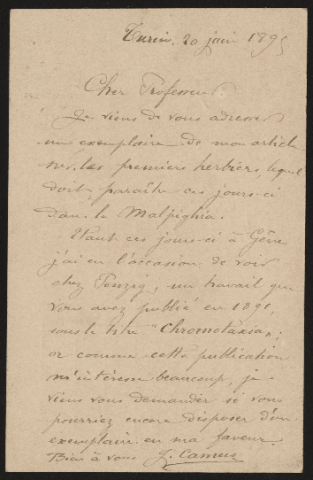 Turin, 20 juin 1895
Cher Professeur
Je viens de vous adresser
un exemplaire de mon article
sur les premiers herbiers, lequel
doit paraître ces jours-ci
dans le Malpighia.
Etant ces jours-ci à Gêne
j'ai eu l'occasion de voir
chez Penzig, un travail que
vous avez publié en 1891,
sous le titre "Chromotaxia";
or comme cette publication
m'intéresse beaucoup, je
viens vous demander si vous
pourriez encore disposer d'un
exemplaire en ma faveur.
Bien à vous J. Camus